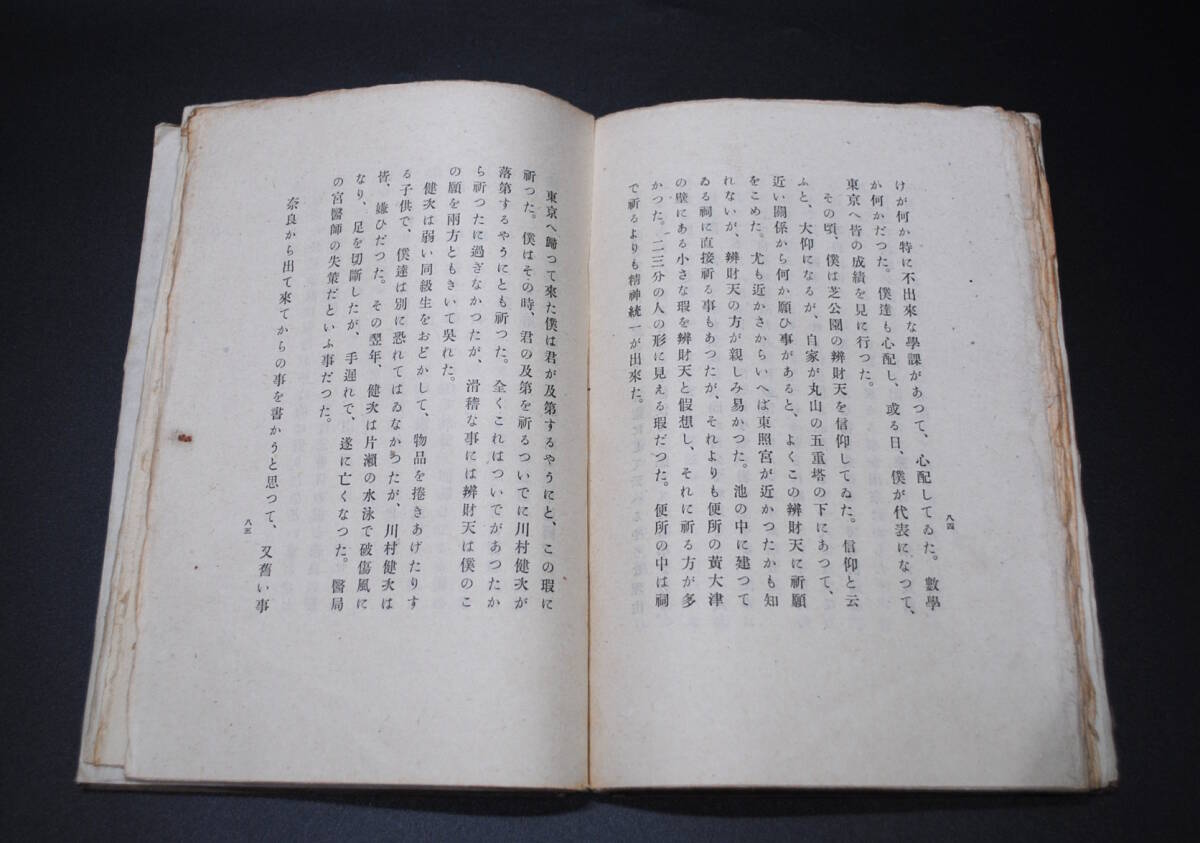 けが何か特に不出來な學課があつて、心配してゐた。數學
か何かだつた。僕達も心配し、或る日、僕が代表になつて、
東京へ皆の成績を見に行つた。
その頃、僕は芝公園の辨財天を信仰してゐた。信仰と云
ふと、大仰になるが、自家が丸山の五重塔の下にあつて、
近い關係から何か願ひ事があると、よくこの辨財天に祈願
をこめた。尤も近かさからいへば東照宮が近かつたかも知
れないが、辨財天の方が親しみ易かつた。池の中に建つて
ゐる祠に直接祈る事もあつたが、それよりも便所の黄大津
の壁にある小さな瑕を辨財天と假想し、それに祈る方が多
かつた。二三分の人の形に見える瑕だつた。便所の中は祠
で祈るよりも精神統一が出來た。
八四
東京へ歸つて來た僕は君が及第するやうにと、この瑕に
祈つた。僕はその時、君の及第を祈るついでに川村健次が
落第するやうにとも祈つた。全くこれはついでがあつたか
ら祈つたに過ぎなかつたが、滑稽な事には辨財天は僕のこ
の願を兩方ともきいて呉れた。
健次は弱い同級生をおどかして、物品を捲きあげたりす
る子供で、僕達は別に恐れてはゐなかつたが、川村健次は
皆、嫌ひだつた。その翌年、健次は片瀬の水泳で破傷風に
なり、足を切斷したが、手遲れで、遂に亡くなつた。醫局
の宮醫師の失策だといふ事だつた。
奈良から出て來てからの事を書かうと思つて、又舊い事
八五